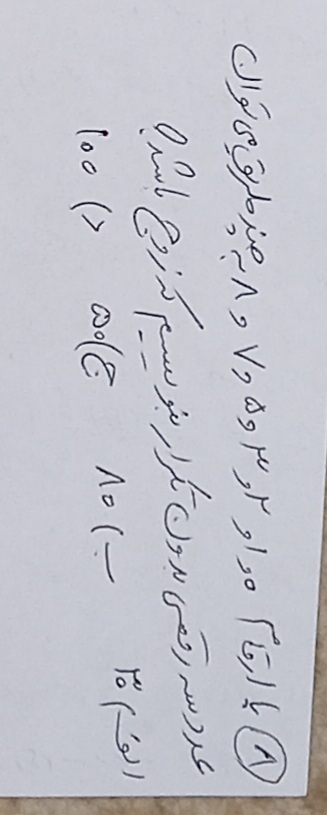 ۸ با ارقام ۰ و ۱ و ۲ و ۳ و ۵ و ۷ و ۸ به چند طریق می توان
عدد سه رقمی بدون تکرار بنویسیم که زوج باشد؟
الف) ۳۰ ب) ۸۰ ج) ۵۰ د) ۱۰۰